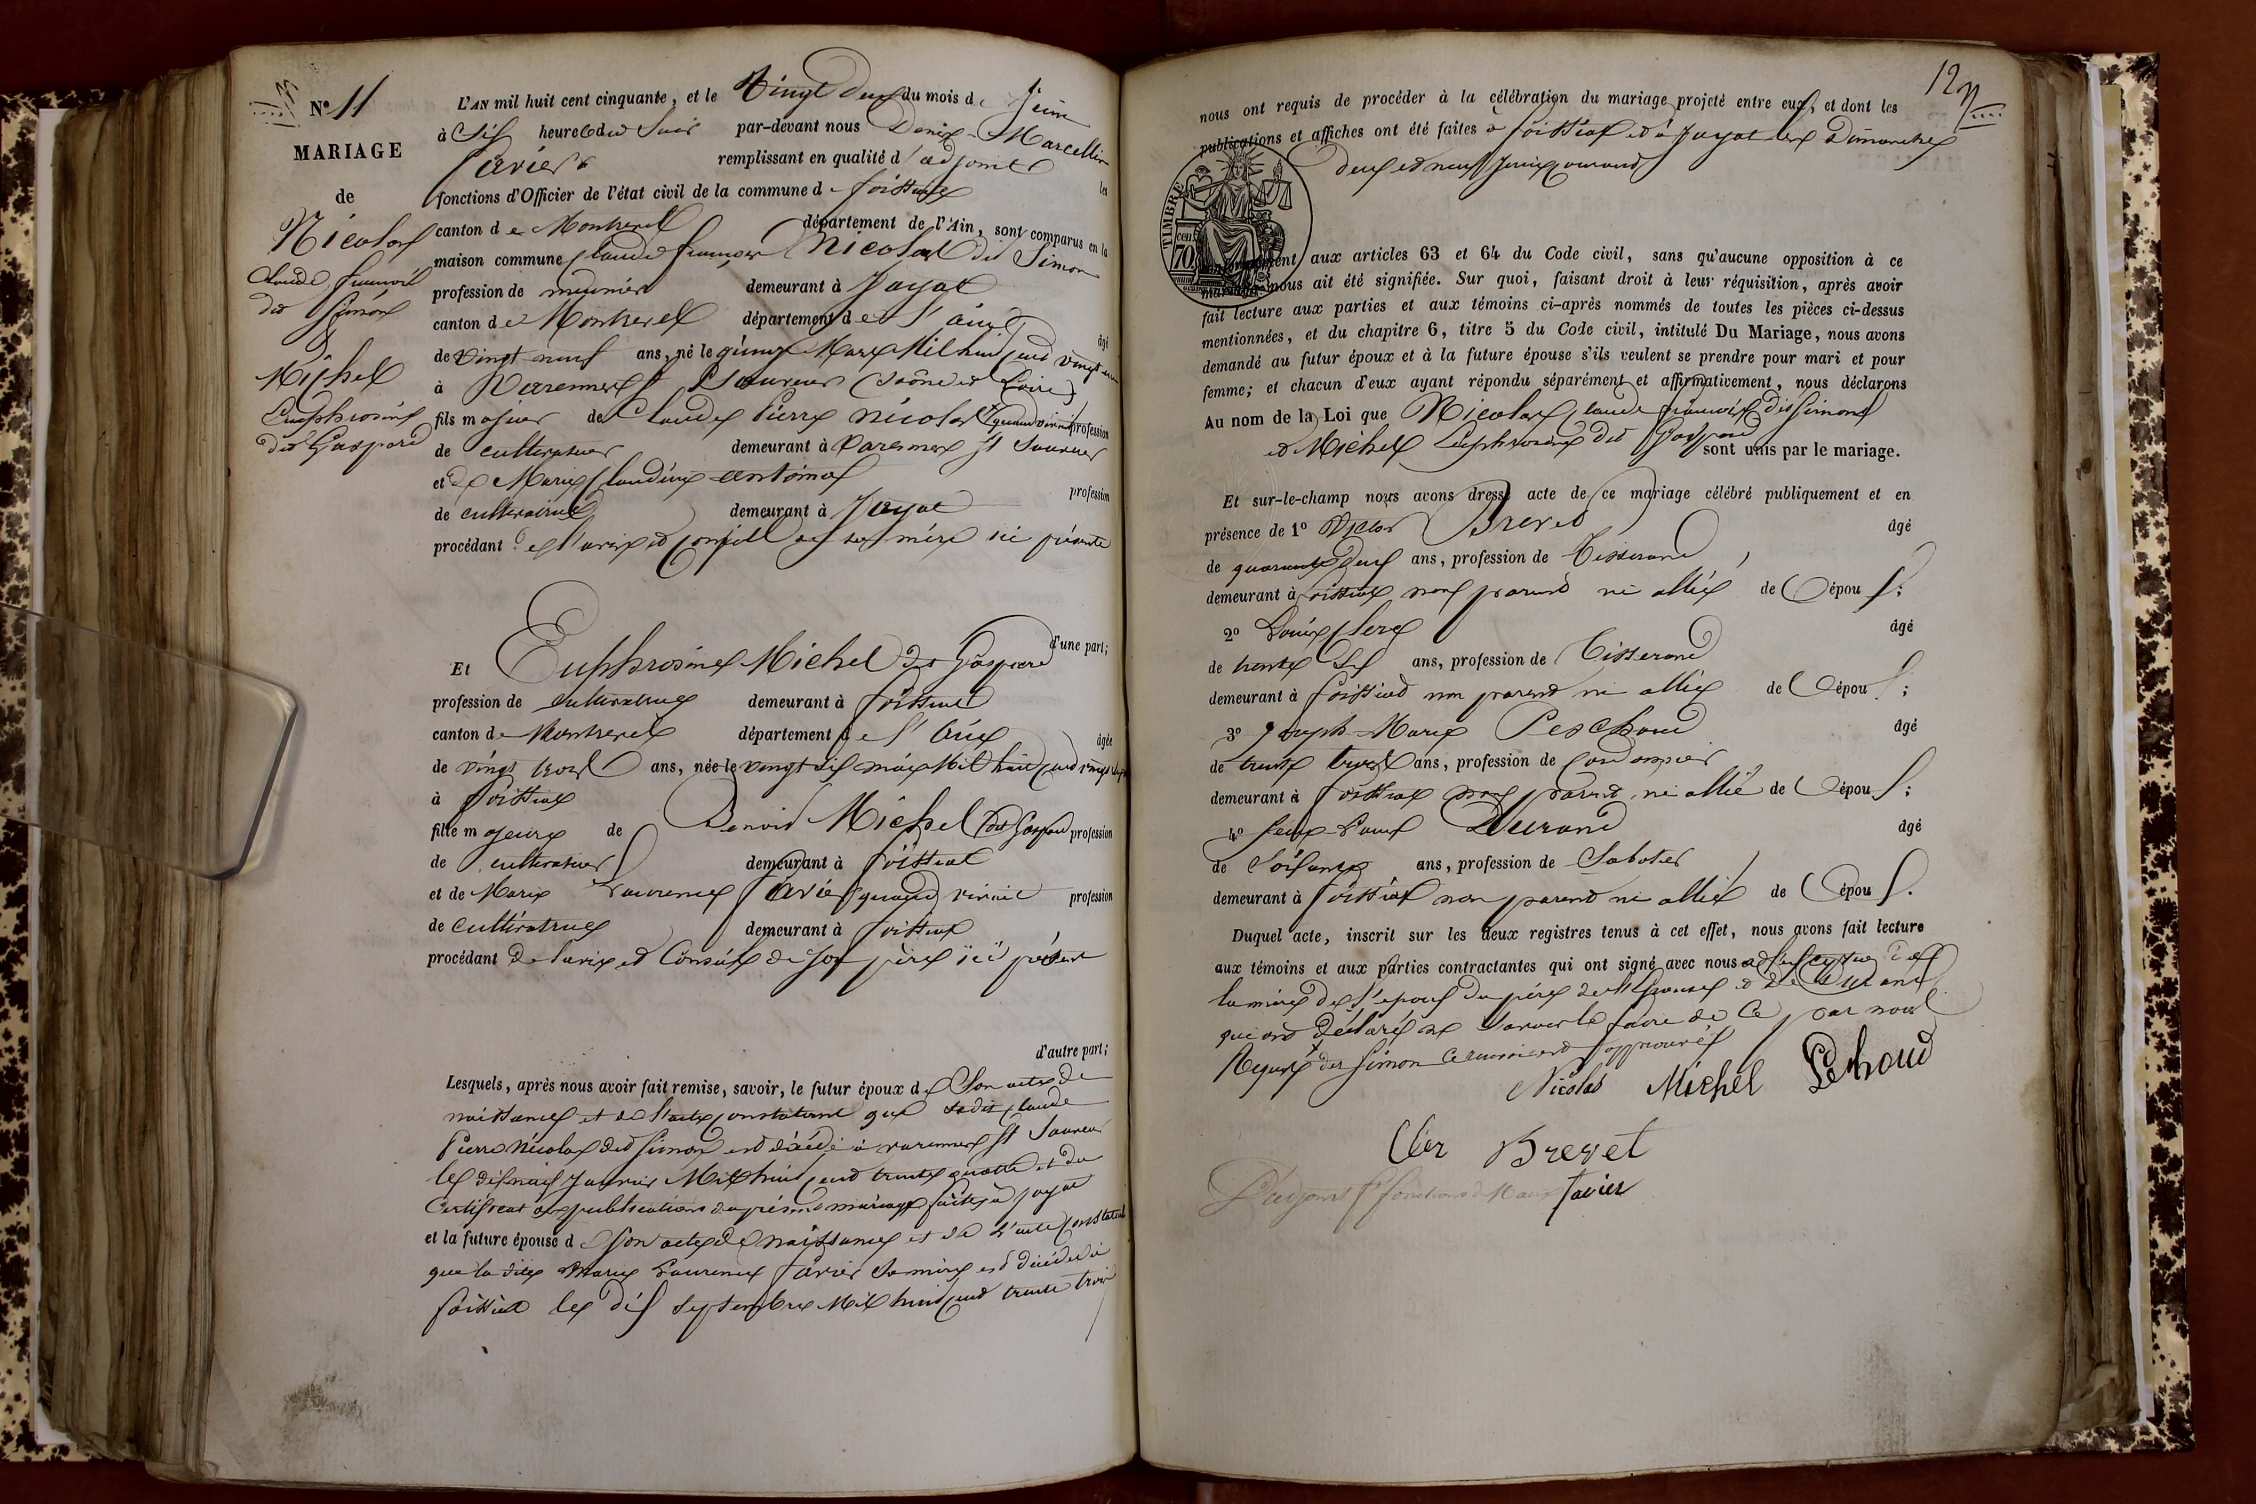 N.º 11
MARIAGE
de
Nicolas
Claude François
dit Simon
&
Michel
Euphrosine
dit Gaspard
L'AN mil huit cent cinquante, et le Vingt deux du mois de Juin
à Six heures du Soir par-devant nous Denis Marcellin
favier remplissant en qualité d'adjoint les
fonctions d'Officier de l'état civil de la commune de foissiat
canton de Montrevel département de l'Ain, sont comparus en la
maison commune Claude françois Nicolas dit Simon
profession de meunier demeurant à Jayat
canton de Montrevel département de l'ain âgé
de vingt neuf ans, né le quinze Mars Mil huit cent vingt un
à Varennes St Sauveur (Saône et Loire)
fils majeur de Claude Pierre Nicolas quand vivait profession
de cultivateur demeurant à Varennes St Sauveur
et de Marie Claudine antoinas profession
de cultivatrice demeurant à Jayat
procédant de l'avis et Conseil de sa mère ici présente
d'une part;
Et Euphrosine Michel dit Gaspard
profession de cultivatrice demeurant à foissiat
canton de Montrevel département de l'Ain âgée
de vingt trois ans, née le vingt six mai Mil huit cent vingt sept
à foissiat
fille majeure de Benoit Michel dit Gaspard profession
de cultivateur demeurant à foissiat
et de Marie Laurence favier quand vivait profession
de cultivatrice demeurant à foissiat
procédant de l'avis et Conseil de son père ici présent
d'autre part;
Lesquels, après nous avoir fait remise, savoir, le futur époux de Son acte de
naissance et de l'acte constatant que ledit Claude
Pierre Nicolas dit Simon est décédé à varennes St Sauveur
le dix neuf Janvier Mil huit cent trente quatre et du
Certificat de publications du présent mariage faites à jayat
et la future épouse de Son acte de naissance et de l'acte constatant
que la dite Marie Laurence favier Sa mère est décédée à
foissiat le dix Septembre Mil huit cent trente trois
12
nous ont requis de procéder à la célébration du mariage projeté entre eux, et dont les
publications et affiches ont été faites à foissiat et à Jayat les Dimanches
deux et neuf Juin courant
TIMBRE
70
conformément aux articles 63 et 64 du Code civil, sans qu'aucune opposition à ce
mariage nous ait été signifiée. Sur quoi, faisant droit à leur réquisition, après avoir
fait lecture aux parties et aux témoins ci-après nommés de toutes les pièces ci-dessus
mentionnées, et du chapitre 6, titre 5 du Code civil, intitulé Du Mariage, nous avons
demandé au futur époux et à la future épouse s'ils veulent se prendre pour mari et pour
femme; et chacun d'eux ayant répondu séparément et affirmativement, nous déclarons
Au nom de la Loi que Nicolas Claude françois dit Simon
et Michel Euphrosine dit Gaspard sont unis par le mariage.
Et sur-le-champ nous avons dressé acte de ce mariage célébré publiquement et en
présence de 1º Victor Brevet âgé
de quarante deux ans, profession de Tisserand
demeurant à foissiat non parent ni allié de l'époux;
2º Louis Clerc âgé
de trente six ans, profession de Tisserand
demeurant à foissiat non parent ni allié de l'époux;
3º Joseph Marie Pechoud âgé
de trente trois ans, profession de Cordonnier
demeurant à foissiat non parent ni allié de l'époux;
4º Jean Louis Durand âgé
de Soixante ans, profession de Sabotier
demeurant à foissiat non parent ni allié de l'époux.
Duquel acte, inscrit sur les deux registres tenus à cet effet, nous avons fait lecture
aux témoins et aux parties contractantes qui ont signé avec nous à l'exception de
la mère de l'époux du père de l'épouse et de Durand
qui ont déclaré ne Savoir le faire de Ce par nous
Requis dit Simon Ce renvoi est approuvé
Nicolas Michel Pechoud
Cler Brevet
L'adjoint ff fonctions de Maire favier